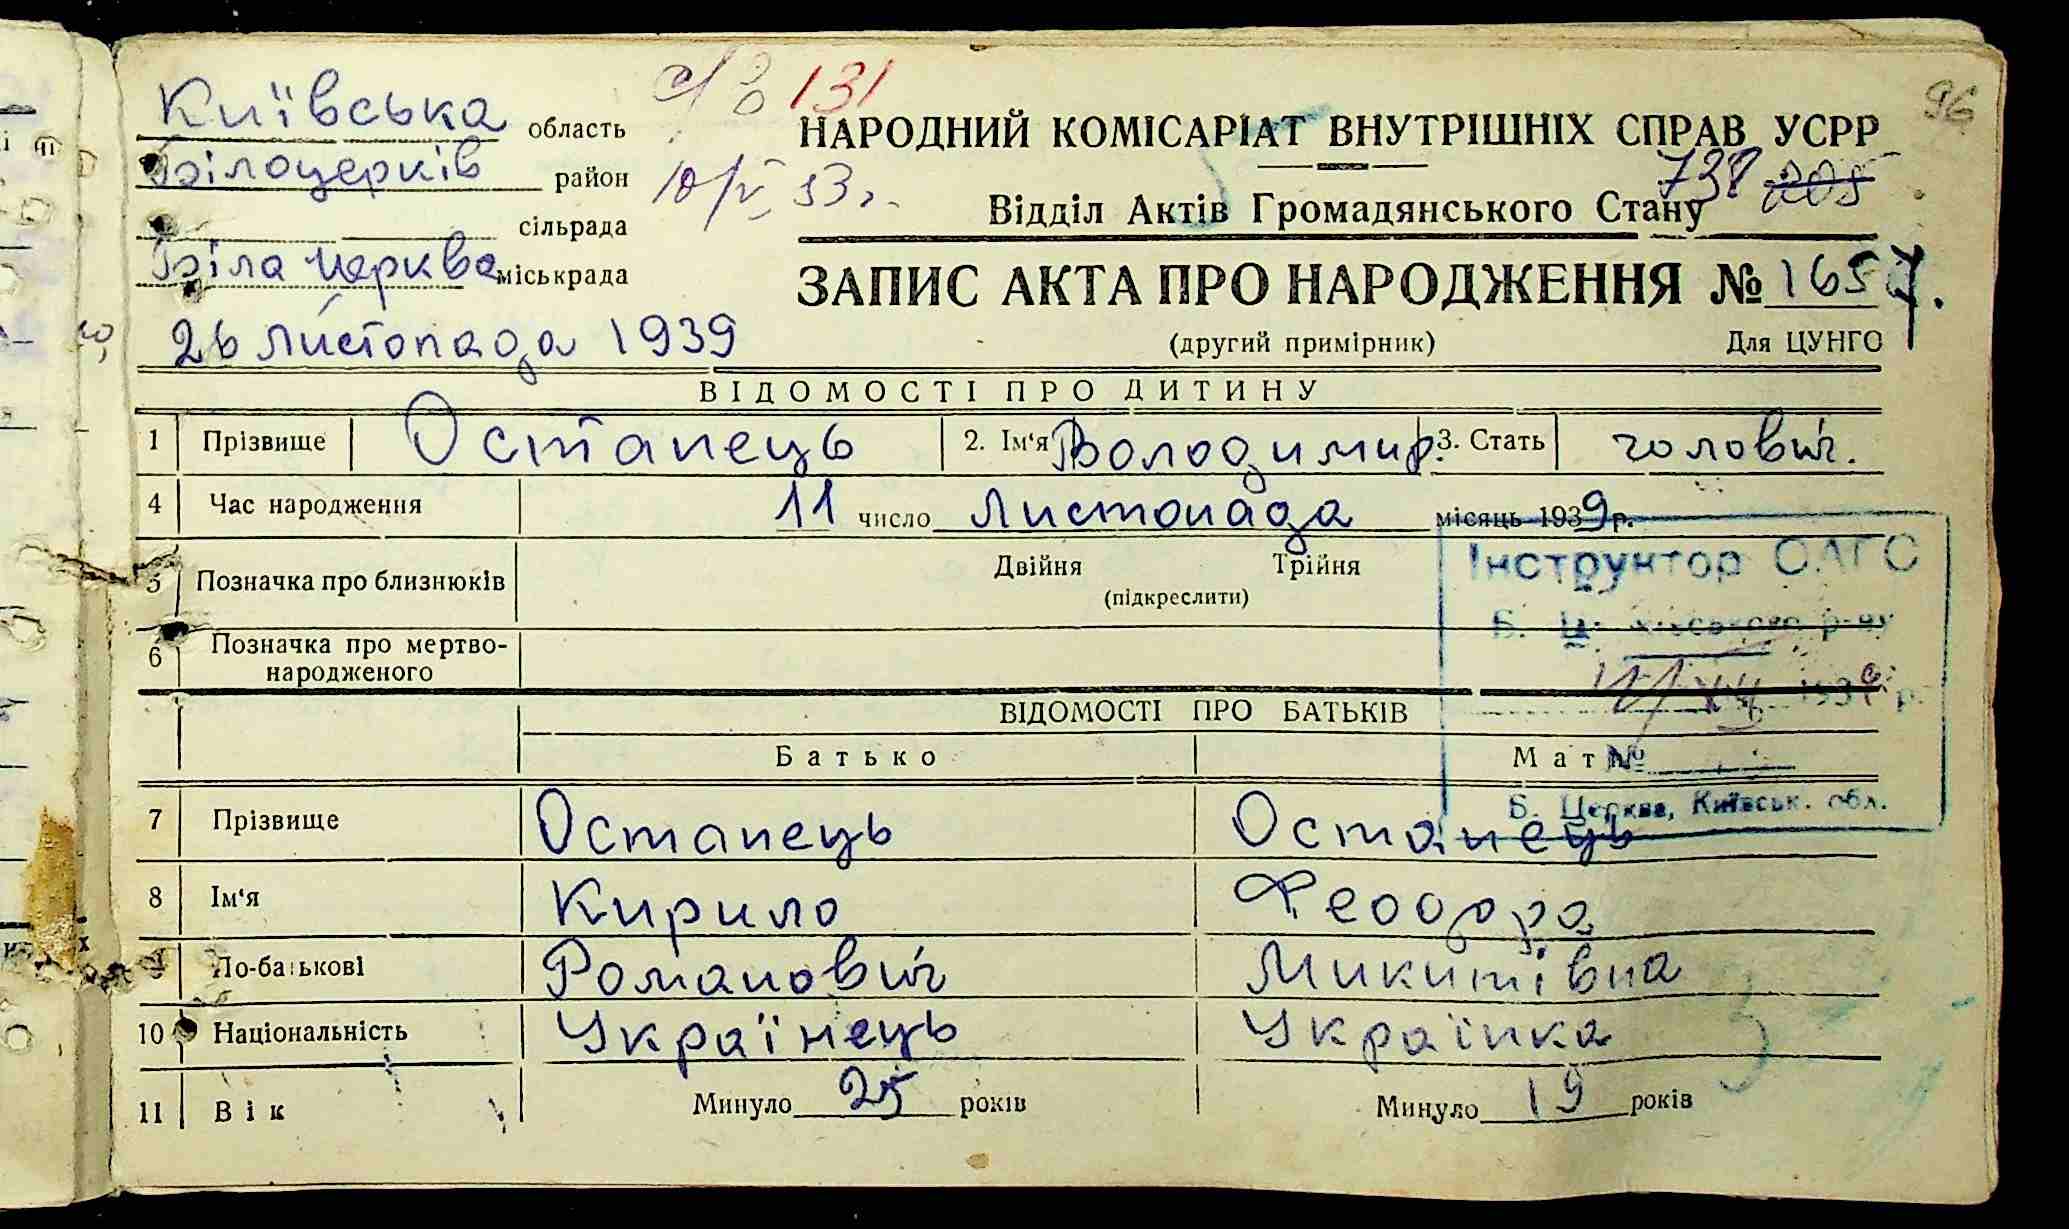 96
Київська область
Білоцерків район
131
10/V 53 г.
сільрада
Біла Церква міськрада
26 листопада 1939
НАРОДНИЙ КОМІСАРІАТ ВНУТРІШНІХ СПРАВ УСРР
738 205
Відділ Актів Громадянського Стану
ЗАПИС АКТА ПРО НАРОДЖЕННЯ № 1657.
(другий примірник) Для ЦУНГО
ВІДОМОСТІ ПРО ДИТИНУ
1 Прізвище Остапець 2. Ім'я Володимир 3. Стать чоловіч.
4 Час народження 11 число листопада місяць 1939 р.
5 Позначка про близнюків Двійня Трійня
(підкреслити)
6 Позначка про мертво-
народженого
Інструктор ОАГС
Б. Ц. р-ну
193 р.
№
Б. Церква, Київськ. обл.
ВІДОМОСТІ ПРО БАТЬКІВ
Батько Мат
7 Прізвище Остапець Остапець
8 Ім'я Кирило Феодора
9 По-батькові Романович Микитівна
10 Національність Українець Українка
11 Вік Минуло 25 років Минуло 19 років